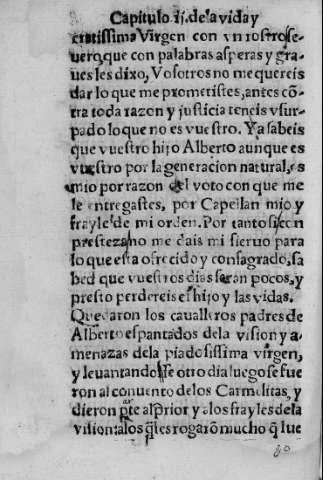 Capitulo .ij. de la vida y
cratissima Virgen con vn rostro se-
uero, que con palabras asperas y gra-
ues les dixo, Vosotros no me quereis
dar lo que me prometistes, antes cõ-
tra toda razon y justicia teneis vsur-
pado lo que no es vuestro. Ya sabeis
que vuestro hijo Alberto aunque es
vuestro por la generacion natural, es
mio por razon del voto con que me
le entregastes, por Capellan mio y
frayle de mi orden. Por tanto si con
presteza no me dais mi sieruo para
lo que esta ofrecido y consagrado, sa
bed que vuestros dias seran pocos, y
presto perdereis el hijo y las vidas.
Quedaron los caualleros padres de
Alberto espantados dela vision y a-
menazas dela piadosissima virgen,
y leuantandose otro dia luego se fue
ron al conuento delos Carmelitas, y
dieron pte al prior y a los frayles dela
vision: a los q̃les rogarõ mucho q̃ lue